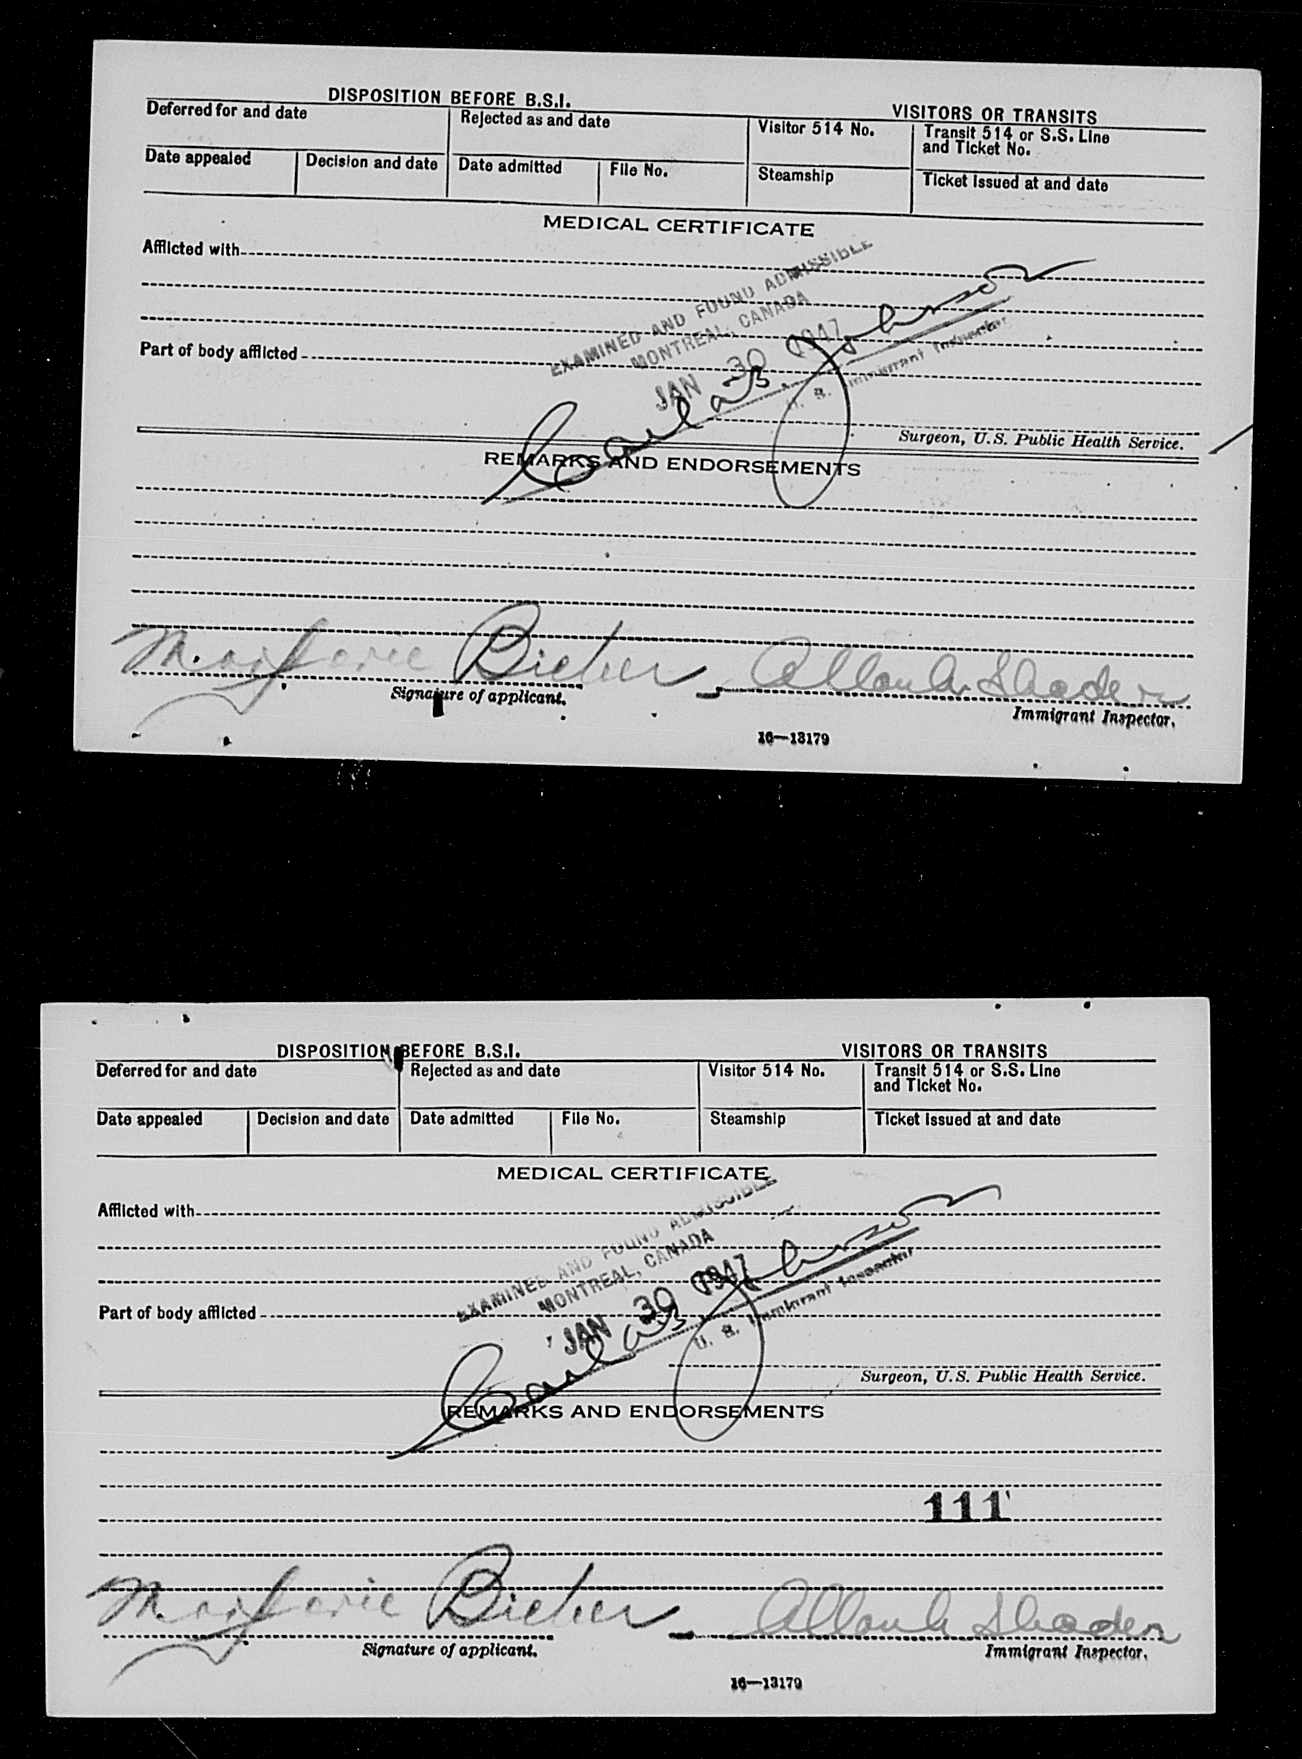 DISPOSITION BEFORE B.S.I.
VISITORS OR TRANSITS
Deferred for and date
Rejected as and date
Visitor 514 No.
Transit 514 or S.S. Line
and Ticket No.
Date appealed
Decision and date
Date admitted
File No.
Steamship
Ticket issued at and date
MEDICAL CERTIFICATE
Afflicted with
EXAMINED AND FOUND ADMISSIBLE
MONTREAL, CANADA
JAN 30 1947
U. S. Immigrant Inspector
Part of body afflicted
Surgeon, U.S. Public Health Service.
REMARKS AND ENDORSEMENTS
Marjorie Bieber
Signature of applicant.
Immigrant Inspector.
16—13179
DISPOSITION BEFORE B.S.I.
VISITORS OR TRANSITS
Deferred for and date
Rejected as and date
Visitor 514 No.
Transit 514 or S.S. Line
and Ticket No.
Date appealed
Decision and date
Date admitted
File No.
Steamship
Ticket issued at and date
MEDICAL CERTIFICATE
Afflicted with
EXAMINED AND FOUND ADMISSIBLE
MONTREAL, CANADA
JAN 30 1947
U. S. Immigrant Inspector
Part of body afflicted
Surgeon, U.S. Public Health Service.
REMARKS AND ENDORSEMENTS
111
Marjorie Bieber
Signature of applicant.
Immigrant Inspector.
16—13179